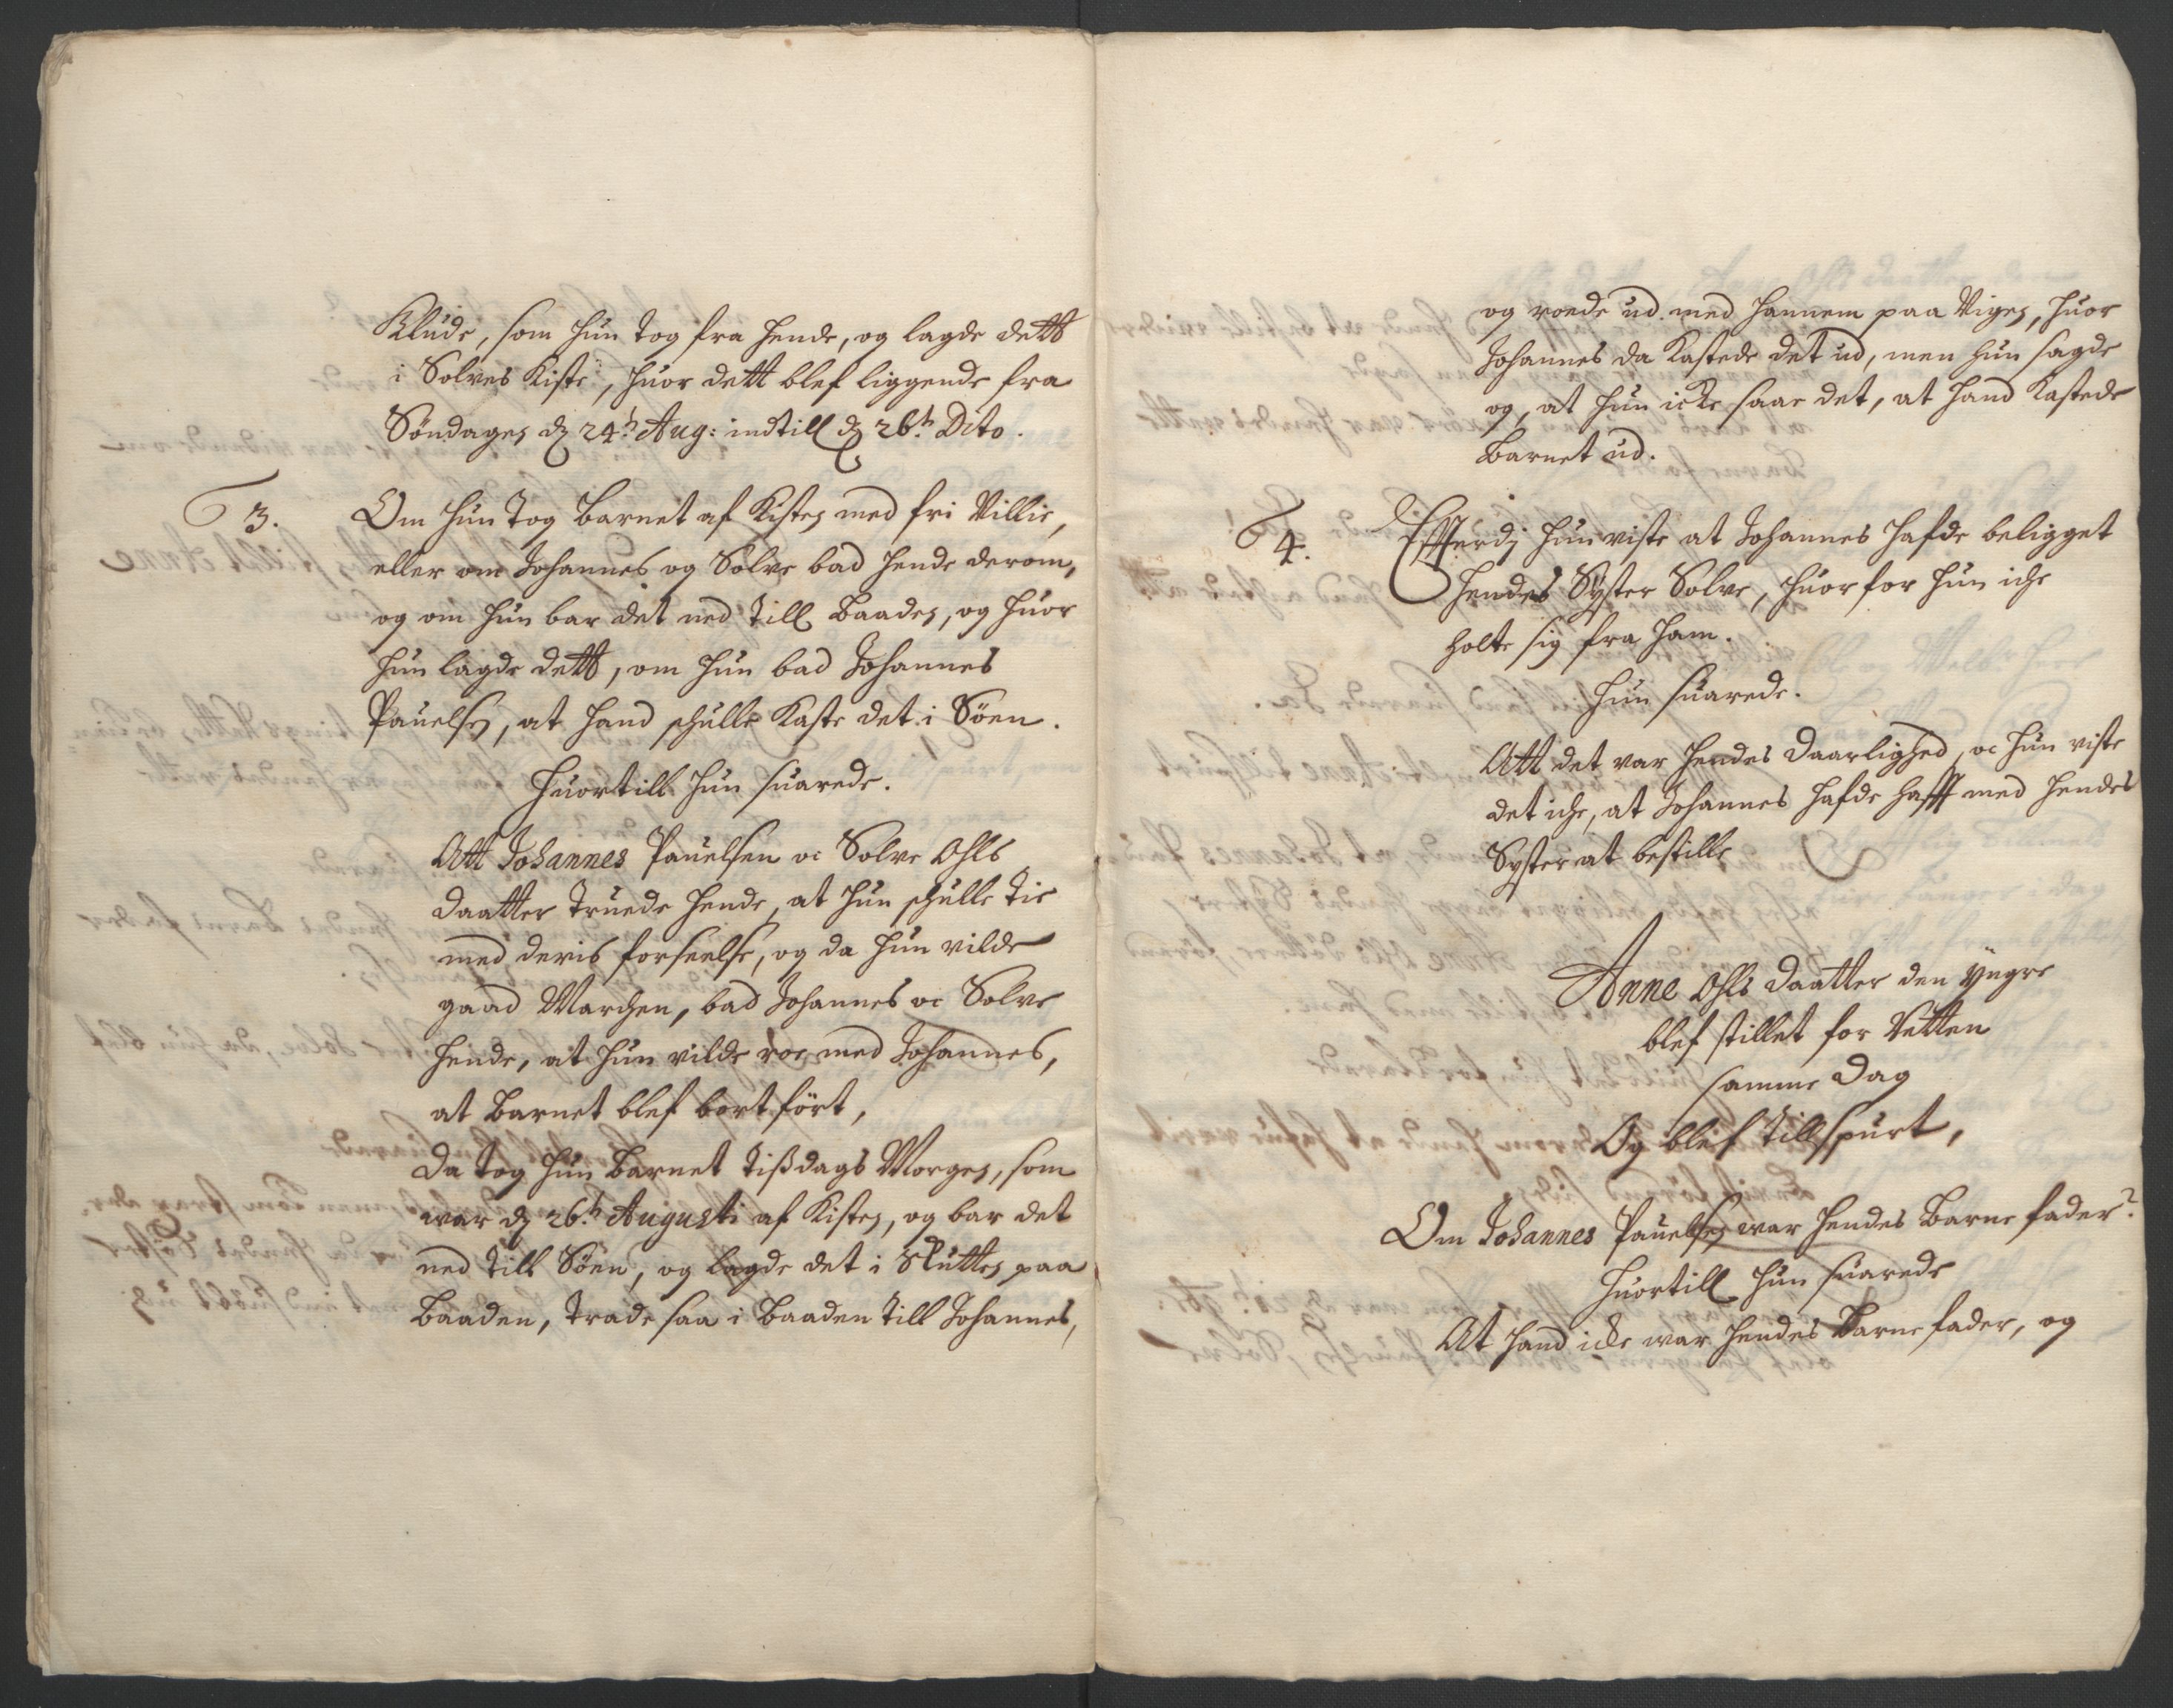 Klude, som hun tog fra hende, og lagde dett
i Solves Kiste, huor dett blef liggende fra
Söndagen d. 24.h Aug: indtill d. 26.h Dito.
3. Om hun tog barnet af Kisten med fri Villie,
eller om Johannes og Solve bad hende derom,
og om hun bar det ned till baaden, og huor
hun lagde dett, om hun bad Johannes
Pauelsen, at hand schulle kaste det i Söen.
Huortill hun suarede.
Att Johannes Pauelsen oc Solve Ohls
daatter truede hende, at hun schulle tie
med deris forseelse, og da hun vilde
gaa ad Marchen, bad Johannes oc Solve
hende, at hun vilde roe med Johannes,
at barnet blef bort fört,
da tog hun barnet Tißdags Morgen, som
war d. 26.h Augusti af Kisten, og bar det
ned till Söen, og lagde det i skutten paa
baaden, trade saa i baaden till Johannes,
og roede ud med hannem paa Vigen, huor
Johannes da kastede det ud, men hun sagde
og, at hun icke saae det, at hand kastede
barnet ud.
4. Efterdj hun viste at Johannes hafde beligget
hendes Syster Solve, huorfor hun iche
holte sig fra ham.
Hun suarede.
Att det var hendes daarlighed, oc hun viste
det iche, at Johannes hafde hafft med hendes
Syster at bestille
Anne Ohls daatter den yngre
blef stillet for Retten
samme dag
Og blef tillspurt,
Om Johannes Pauelsen war hendes barnefader?
Huortill hun suarede
At hand icke war hendes barnefader, og